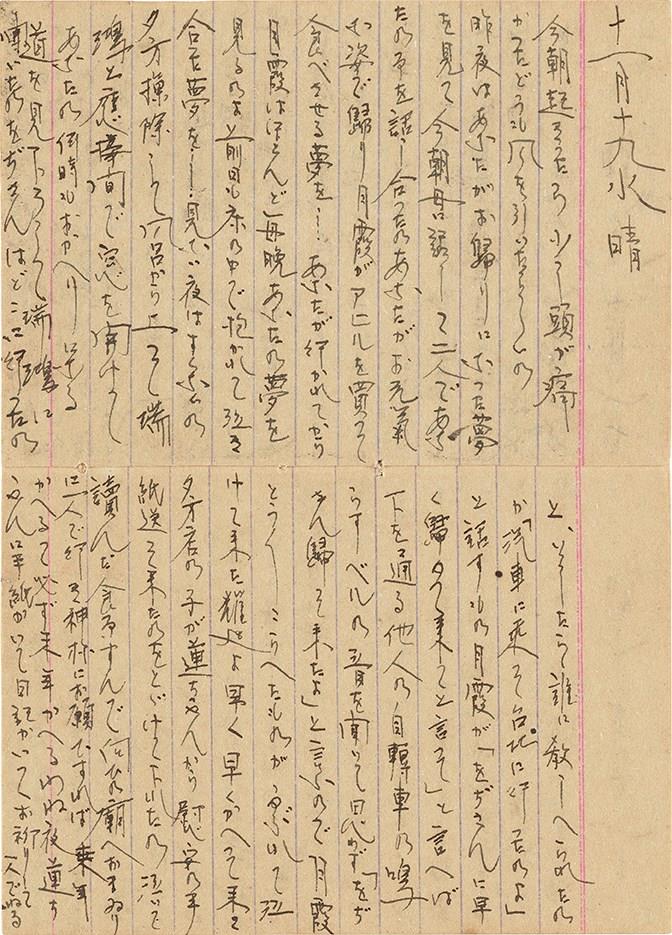 十一月十九水 晴
今朝起きたら少し頭が痛
かったどうも風を引いたらしいの
昨夜はあなたがお歸りになった夢
を見て今朝母に話して二人であな
たの事を話し合ったのあなたがお元氣
な姿で歸り月霞がアヒルを買って
食べさせる夢を…あなたが行かれてから
月霞はほとんど毎晩あなたの夢を
見るのよ前回も床の中で抱かれて泣き
合った夢を…見ない夜はすくないの
夕方掃除して風呂から上って瑞
瓊と應接間で窓を開けて
あなたの何時もおかへりになる
道を見下ろして瑞瓊に
嘴いたのをぢさんはどこに行ったの
と、いったら誰に教へられたの
か「汽車に乘って台北に行ったのよ」
と話すもの月霞が「をぢさんに早
く歸って来てと言って」と言へば
下を通る他人の自轉車の鳴
らすベルの音を聞いて思わず「をぢ
さん歸って来たよ」と言ふので月霞
とうとうこらへたものがやぶれて泣
けて来た 耀廷よ早く早くかへって来て
夕方店の子が蓮ちゃんから慰安の手
紙送って来たのをとどけて下れたの泣いて
讀んだ食事すんで 廟へおまゐり
に二人で行って神様にお願ひすれば
かへるって必ず来年かへるわね夜蓮ち
ゃんに手紙かいて日記かいてお祈りして一人でねる